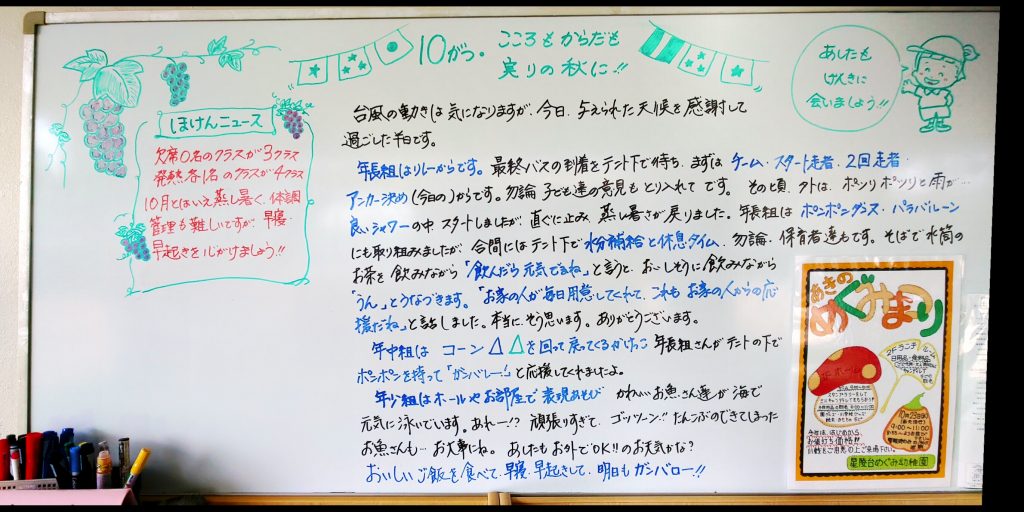 10がつ。
こころもからだも
実りの秋に!!
あしたも
げんきに
会いましょう!!
ほけんニュース
欠席0名のクラスが3クラス
発熱各1名のクラスが4クラス
10月とはいえ蒸し暑く、体調
管理も難しいですが、早寝
早起きを心がけましょう!!
台風の動きは気になりますが、今日、与えられた天候を感謝して
過ごした半日です。
年長組はリレーからです。最終バスの到着をテント下で待ち、まずは チーム・スタート走者・2回走者・
アンカー決め(今日の)からです。勿論 子ども達の意見もとり入れて です。 その頃、外は、ポツリポツリと雨が…
良いシャワーの中 スタートしましたが、直ぐに止み、蒸し暑さが戻りました。年長組は ポンポンダンス・パラバルーン
にも取り組みましたが、合間にはテント下で水分補給と休息タイム。勿論、保育者達もです。そばで水筒の
お茶を飲みながら「飲んだら元気でるね」と言うと、おいしそうに飲みながら
「うん」とうなづきます。「お家の人が毎日用意してくれて、これも お家の人からの応
援だね」と話しました。本当に、そう思います。ありがとうございます。
年中組は コーン△△を回って戻ってくるかけっこ 年長組さんがテントの下で
ポンポンを持って「ガンバレー!」と応援してくれましたよ。
年少組はホールやお部屋で表現あそび かわいいお魚さん達が海で
元気に泳いでいます。あれー!? 頑張りすぎて、ゴッツーン!! たんこぶのできてしまった
お魚さんも… お大事にね。 あしたもお外でOK!!のお天気かな?
おいしいご飯を食べて、早寝・早起きして、明日もガンバロー!!
あきの
めぐみまつり
10月23日
9:00〜11:00
星陵台めぐみ幼稚園